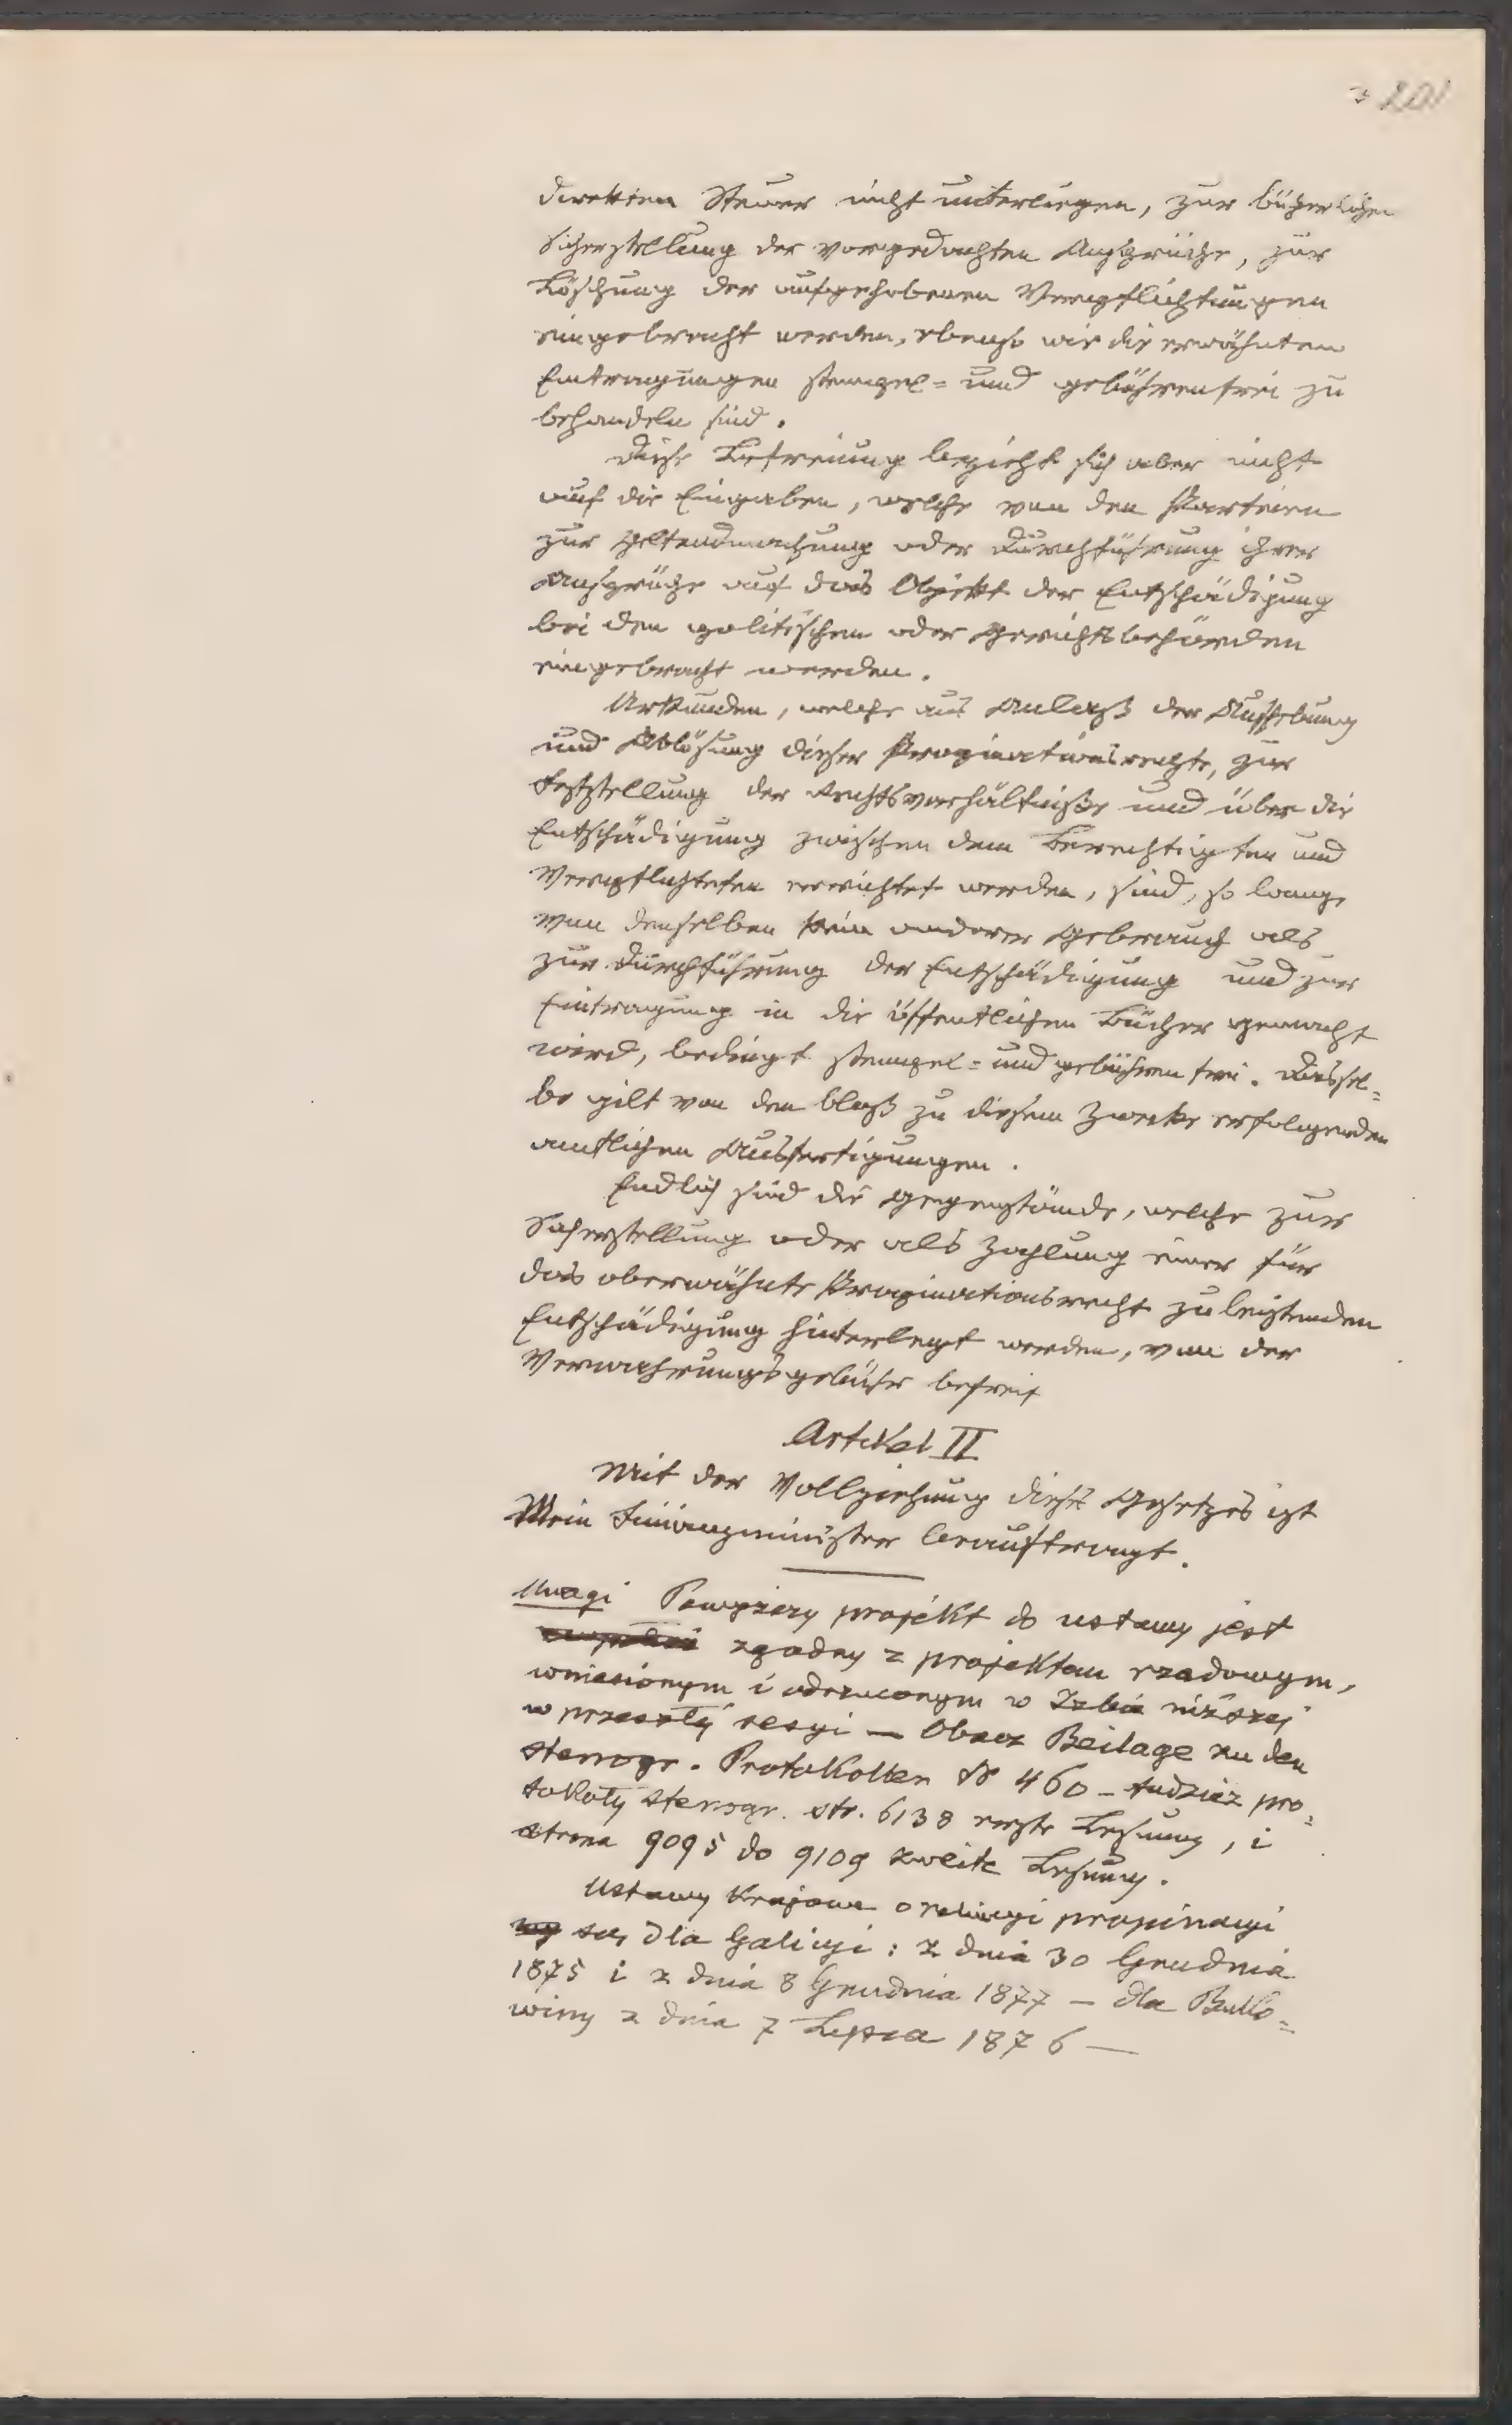 201
direkten Steuer nicht unterliegen, zur bücherlichen
Sicherstellung der vorgedachten Ansprüche, zur
Löschung der aufgehobenen Verpflichtungen
eingebracht werden, ebenso wie die erwähnten
Eintragungen stempel= und gebührenfrei zu
behandeln sind.
Diese Befreiung bezieht sich aber nicht
auf die Eingaben, welche von den Parteien
zur Geltendmachung oder Durchführung ihrer
Ansprüche auf das Objekt der Entschädigung
bei den politischen oder Gerichtsbehörden
eingebracht werden.
Urkunden, welche aus Anlaß der Aufhebung
und Ablösung dieser Propinationsrechte, zur
Feststellung der Rechtsverhältniße und über die
Entschädigung zwischen dem Berechtigten und
Verpflichteten errichtet werden, sind, so lange
von denselben kein anderer Gebrauch als
zur Durchführung der Entschädigung und zur
Eintragung in die öffentlichen Bücher gemacht
wird, bedingt stempel= und gebührenfrei. Dassel=
be gilt von den bloß zu diesem Zwecke erfolgenden
amtlichen Ausfertigungen.
Endlich sind die Gegenstände, welche zur
Sicherstellung oder als Zahlung einer für
das oberwähnte Propinationsrecht zu leistenden
Entschädigung hinterlegt werden, von der
Verwahrungsgebühr befreit
Artikel II
Mit der Vollziehung dieses Gesetzes ist
Mein Finanzminister beauftragt.
Uwagi Powyższy projekt do ustawy jest
zgodny z projektem rzadowym,
wniesionym i odrzuconym w Izbie niższej
w przeszłéj sesyi — Obacz Beilage zu den
stenogr. Protokollen № 460 – tudzież pro=
tokoły stenogr. str. 6138 erste Lesung, i
strona 9095 do 9109 zweite Lesung.
Ustawy krajowe o propinacyi
są dla Galicyi: z dnia 30 Grudnia
1875 i z dnia 8 Grudnia 1877 — dla Buko=
winy z dnia 7 Lipca 1876 —